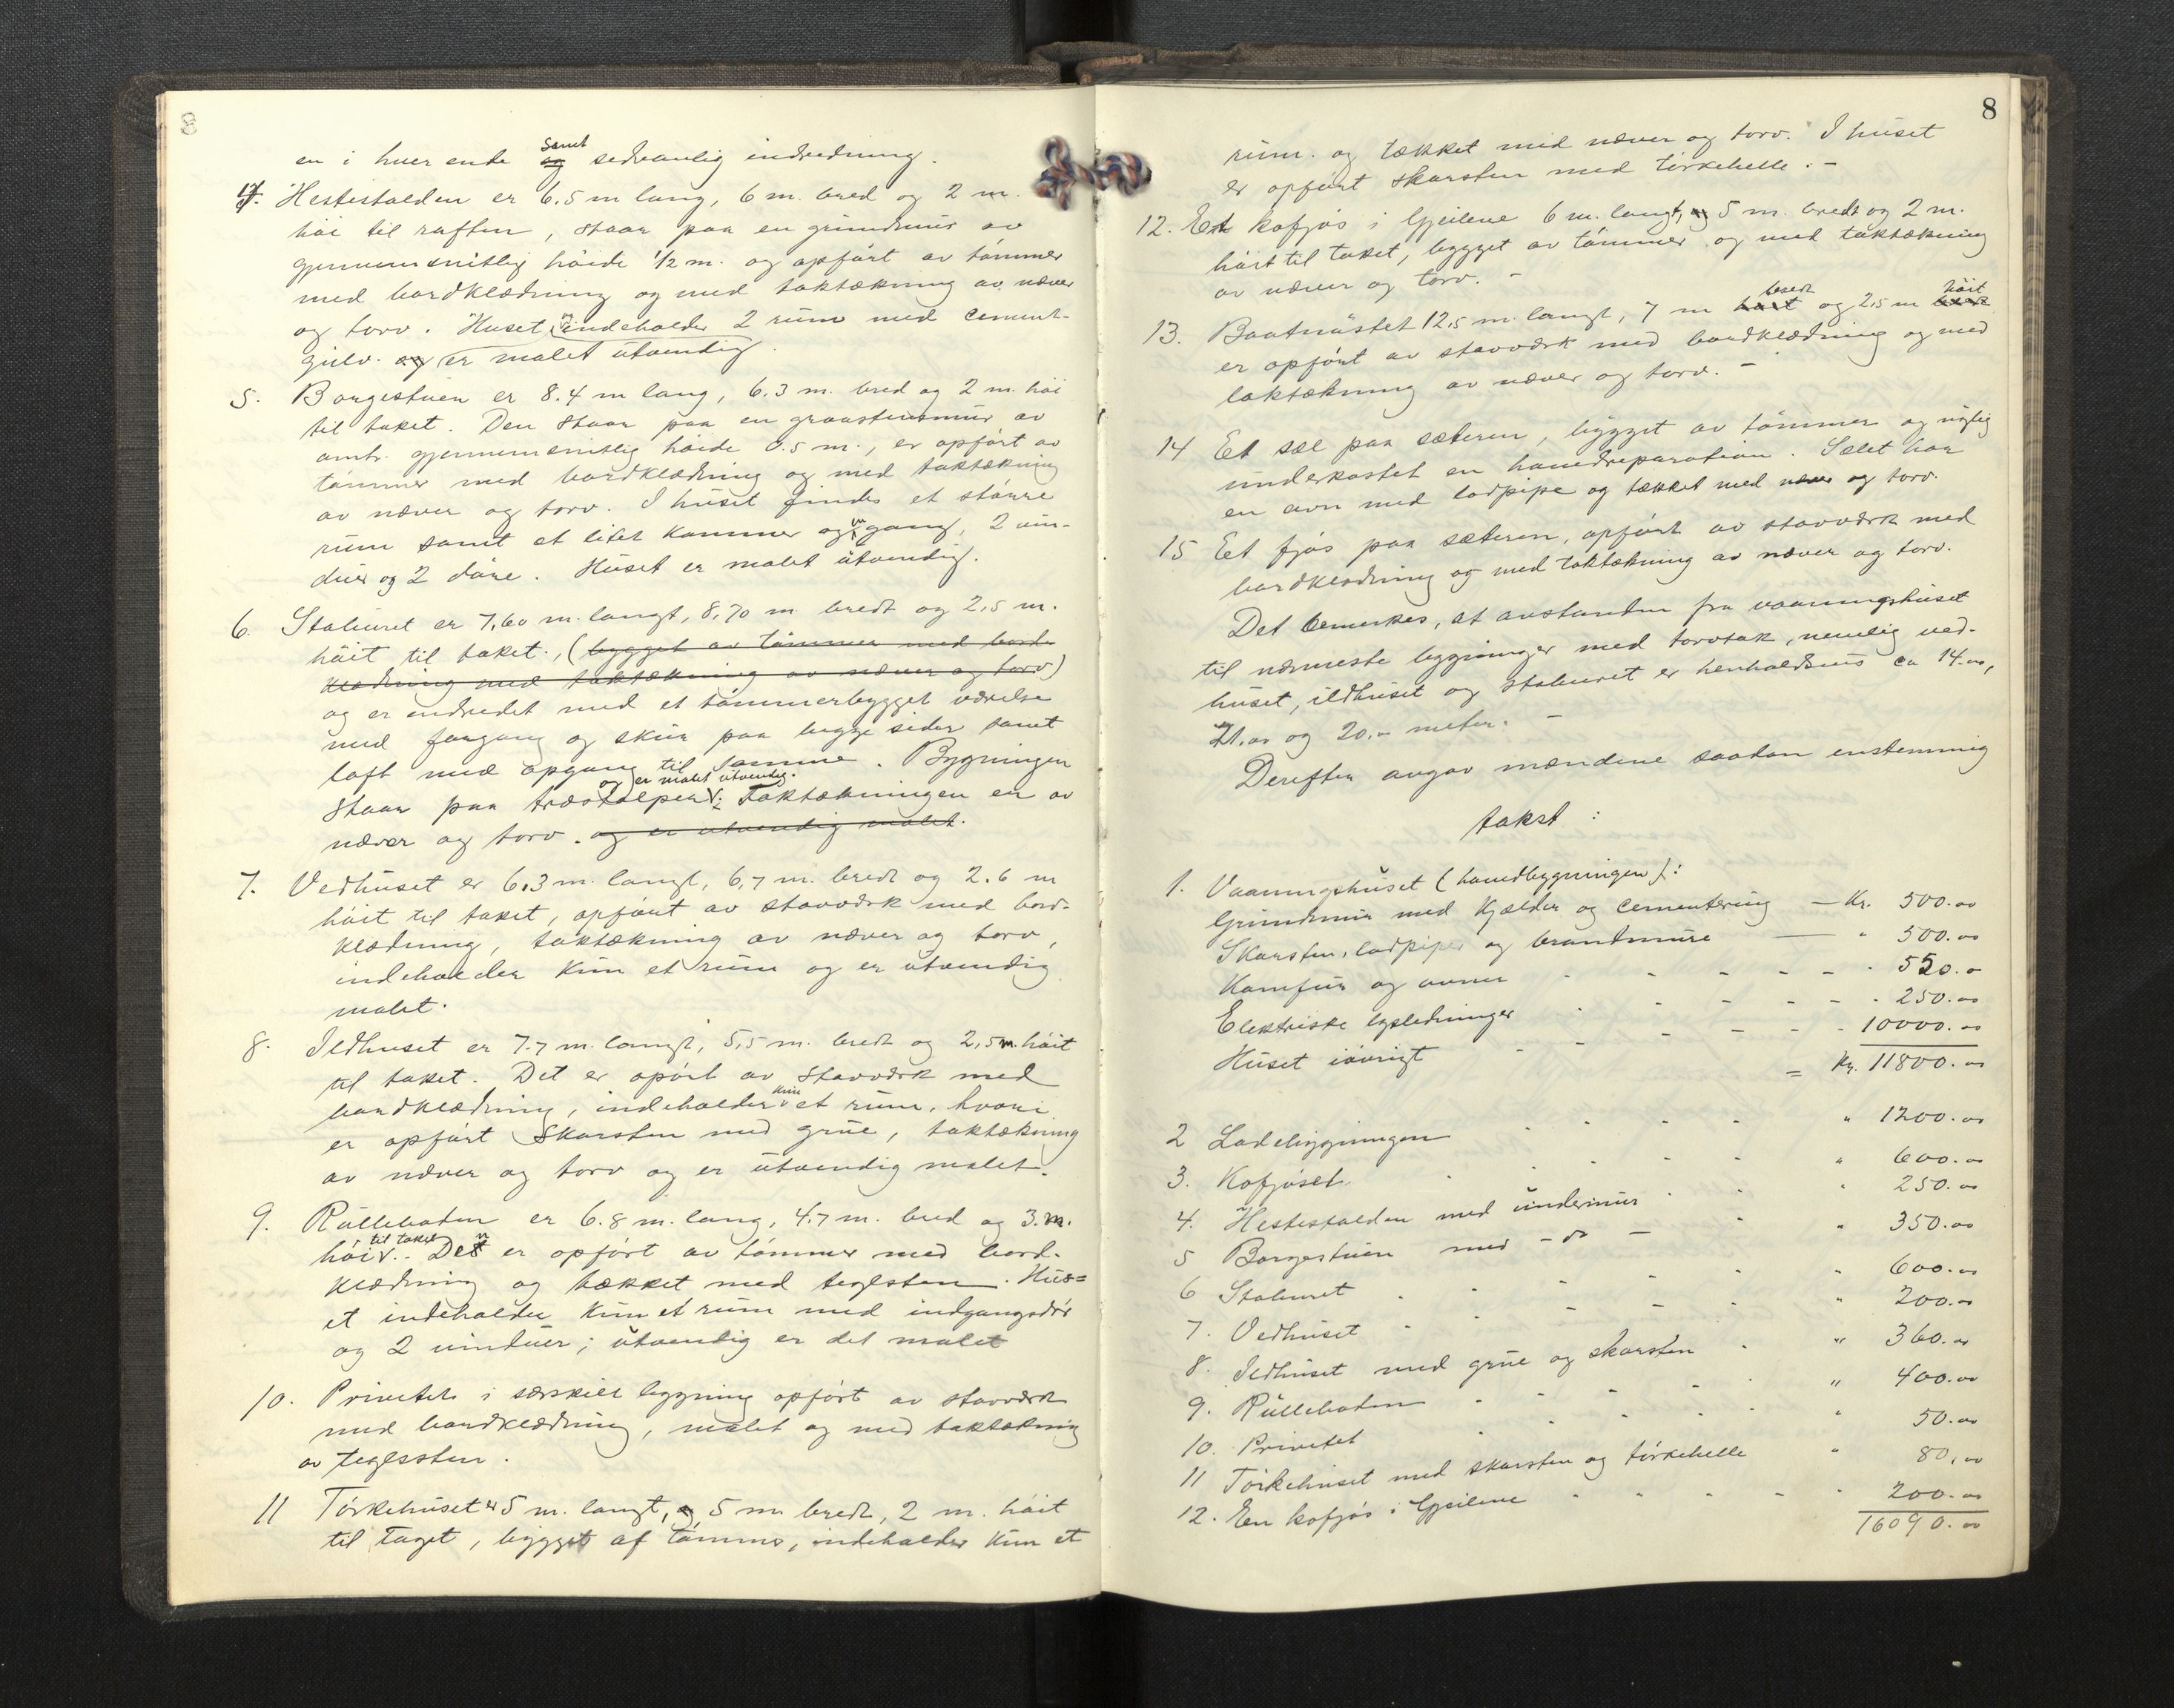 8
en i hver ende og samt sedvanlig indredning.
4. Hestestalden er 6.5 m lang, 6 m. bred og 2 m.
høi til raften, staar paa en grundmur av
gjennemsnitlig høide 1/2 m. og opført av tømmer
med bordklædning og med taktækning av næver
og torv. Huset indeholder 2 rum med cement-
gulv. og er malet utvendig.
5. Borgestuen er 8.4 m lang, 6.3 m. bred og 2 m. høi
til taket. Den staar paa en graastensmur av
omtr. gjennemsnitlig høide 0.5 m., er opført av
tømmer med bordklædning og med taktækning
av næver og torv. I huset findes et større
rum samt et litet kammer og en gang, 2 vin-
duer og 2 døre. Huset er malet utvendig.
6. Staburet er 7,60 m. langt, 8,70 m. bredt og 2,5 m.
høit til taket., (bygget av tømmer med bord-
klædning med taktækning av næver og torv)
og er indredet med et tømmerbygget værelse
med forgang og skur paa begge sider samt
loft med opgang til samme. Bygningen
staar paa træstolper og er malet utvendig. Taktækningen er av
næver og torv. og er utvendig malet.
7. Vedhuset er 6,3 m. langt, 6,7 m. bredt og 2.6 m
høit til taket, opført av stavværk med bord-
klædning, taktækning av næver og torv,
indeholder kun et rum og er utvendig
malet.
8. Ildhuset er 7.7 m. langt, 5,5 m. bredt og 2,5 m. høit
til taket. Det er opört av stavværk med
bordklædning, indeholder kun et rum, hvori
er opført Skorsten med grue, taktækning
av næver og torv og er utvendig malet.
9. Rulleboden er 6.8 m. lang, 4.7 m. bred og 3. m.
høi til taket. Den er opført av tømmer med bord-
klædning og tækket med teglsten. Hus=
et indeholder kun et rum med indgangsdør
og 2 vinduer; utvendig er det malet
10. Privetet i særskilt bygning opført av stavværk
med bordklædning, malet og med taktækning
av teglssten.
11 Tørkehuset er 5 m. langt, og 5 m bredt, 2 m. høit
til Taget, bygget af tømmer, indeholder kun et
8
rum. og tækket med næver og torv. I huset
er opført skorsten med tørkehelle. -
12. Et kofjøs i Gjeilene 6 m. langt, og 5 m. bredt og 2 m.
høit til taket, bygget av tømmer og med taktækning
av næver og torv. -
13. Baatnøstet 12,5 m. langt, 7 m høit bredt og 2,5 m bredt høit
er opført av stavværk med bordklædning og med
taktækning av næver og torv. -
14 Et sæl paa sæteren, bygget av tømmer og nylig
underkastet en hovedreparation. Sælet har
en ovn med lodpipe og tækket med næver og torv.
15 Et fjøs paa sæteren, opført av stavværk med
bordklædning og med taktækning av næver og torv.
Det bemerkes, at avstanden fra vaaningshuset
til nærmeste bygninger med torvtak, nemlig ved-
huset, ildhuset og staburet er henholdsvis ca 14.00,
21.00 og 20.00 meter. -
Derefter avgav mændene saadan enstemmig
takst :
1. Vaaningshuset (hovedbygningen):
Grundmur med Kjælder og cementering — Kr. 500.00
Skorsten, lodpiper og brandmure — " 500.00
Komfur og ovner - - - - - 550.00
Elektriske lysledninger - - - - 250.00
Huset iøvrigt - - - - 10000.00
= Kr. 11800.00
2 Ladebygningen - - - - " 1200.00
3. Kofjøset. - - - - " 600.00
4. Hestestalden med undermur - - " 250.00
5 Borgestuen med - do - - " 350.00
6 Staburet - - - - - " 600.00
7. Vedhuset - - - - - " 200.00
8. Ildhuset med grue og skorsten - " 360.00
9. Rulleboden - - - - - " 400.00
10. Privetet - - - - - " 50.00
11 Tørkehuset med skorsten og tørkehelle " 80,00
12. En kofjøs i Gjeilene - - - - - 200.00
16090.00